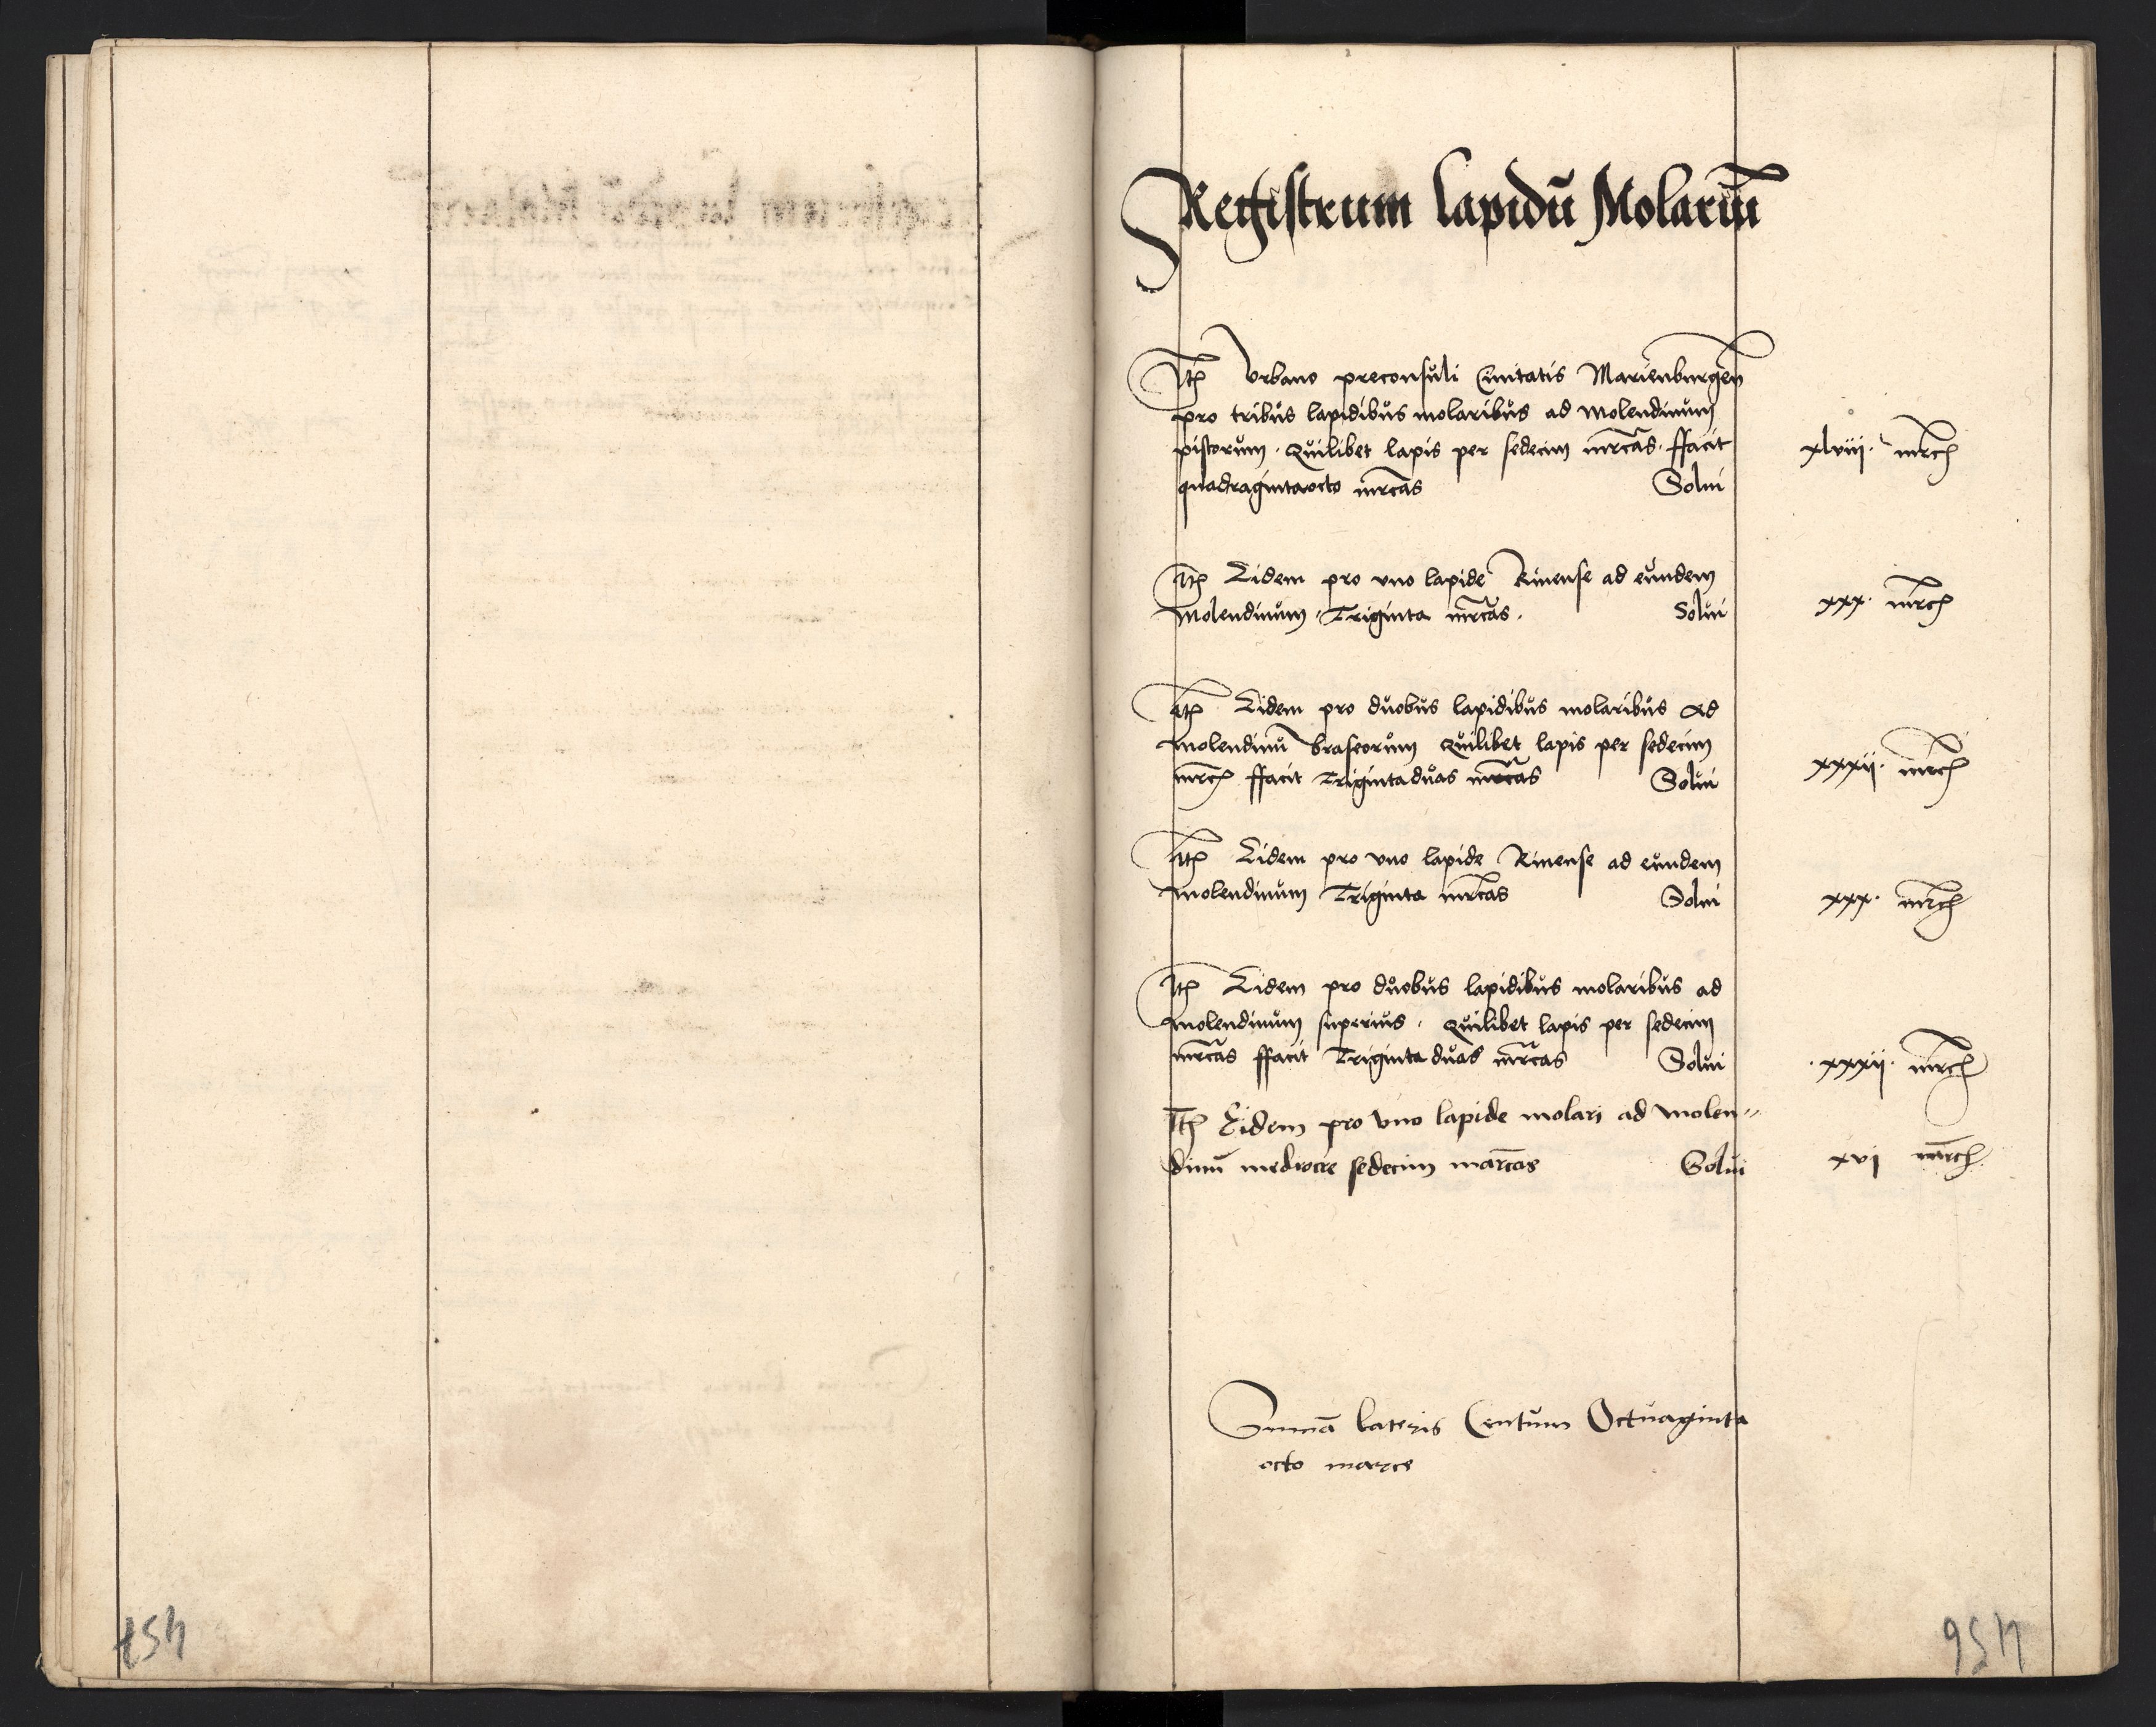 Registrum lapidū Molariū
Itē Vrbano preconsuli Ciuitatis Marienburgēn
pro tribus lapidibus molaribus ad molendinum
pistorum · Quilibet lapis per sedecim mrcas · ffacit
quadragintaocto mrcas Solui
xlviii · mrc
Itē Eidem pro vno lapide Rinense ad eundem
Molendinum · Triginta mrcas · Solui
xxx · mrc
Itē Eidem pro duobus lapidibus molaribus ad
molendinū braseorum Quilibet lapis per sedecim
mrc ffacit Trigintaduas mrcas Solui
xxxii · mrc
Itē Eidem pro vno lapide Rinense ad eundem
molendinum Triginta mrcas Solui
xxx · mrc
Itē Eidem pro duobus lapidibus molaribus ad
molendinum superius · Quilibet lapis per sedecim
mrcas ffacit Triginta duas mrcas Solui
· xxxii · mrc
Itē Eidem pro vno lapide molari ad molen〃
dinū mediocre sedecim marcas Solui
xvi mrc
Summa lateris Centum Octuaginta
octo marce
457
456